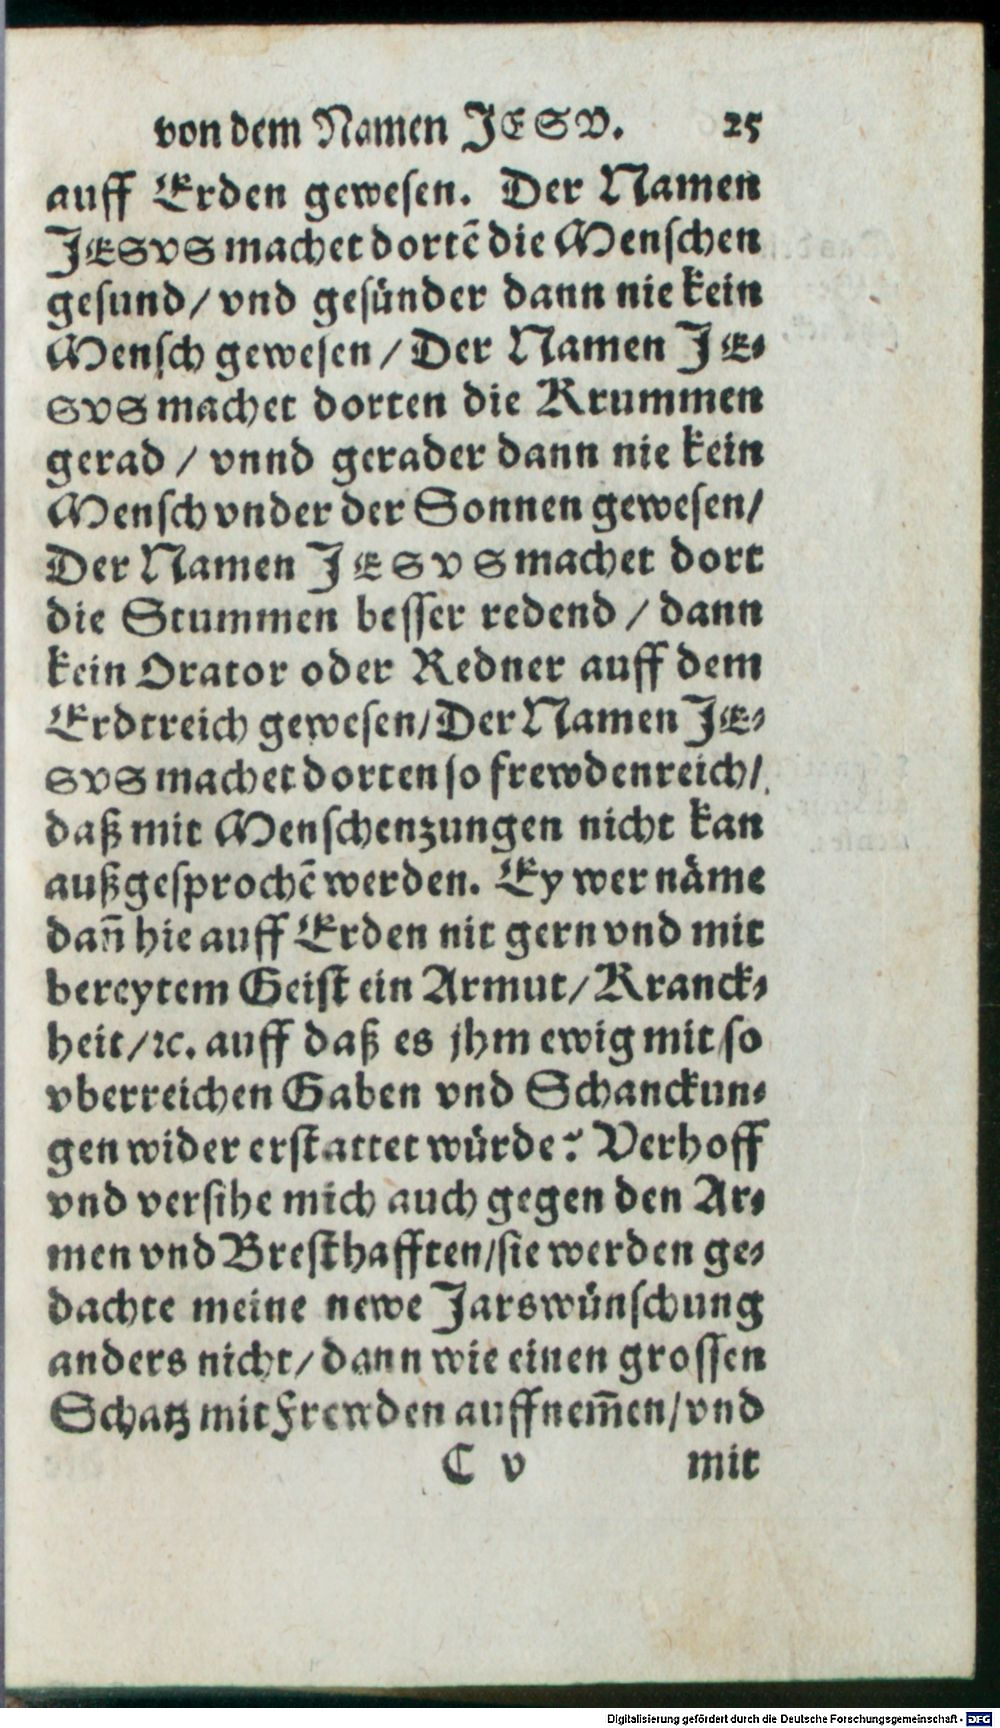 von dem Namen JESV. 25
auff Erden gewesen. Der Namen
JESVS machet dortē die Menschen
gesund/ vnd gesünder dann nie kein
Mensch gewesen / Der Namen JE-
SVS machet dorten die Krummen
gerad / vnnd gerader dann nie kein
Mensch vnder der Sonnen gewesen/
Der Namen JESVS machet dort
die Stummen besser redend / dann
kein Orator oder Redner auff dem
Erdtreich gewesen/Der Namen JE-
SVS machet dorten so frewdenreich/
daß mit Menschenzungen nicht kan
außgesprochē werden. Ey wer näme
dañ hie auff Erden nit gern vnd mit
bereytem Geist ein Armut/Kranck-
heit/ꝛc. auff daß es jhm ewig mit so
vberreichen Gaben vnd Schanckun-
gen wider erstattet würde? Verhoff
vnd versihe mich auch gegen den Ar-
men vnd Bresthafften/sie werden ge-
dachte meine newe Jarswünschung
anders nicht/dann wie einen grossen
Schatz mit Frewden auffnem̄en/vnd
C v mit
Digitalisierung gefördert durch die Deutsche Forschungsgemeinschaft - DFG